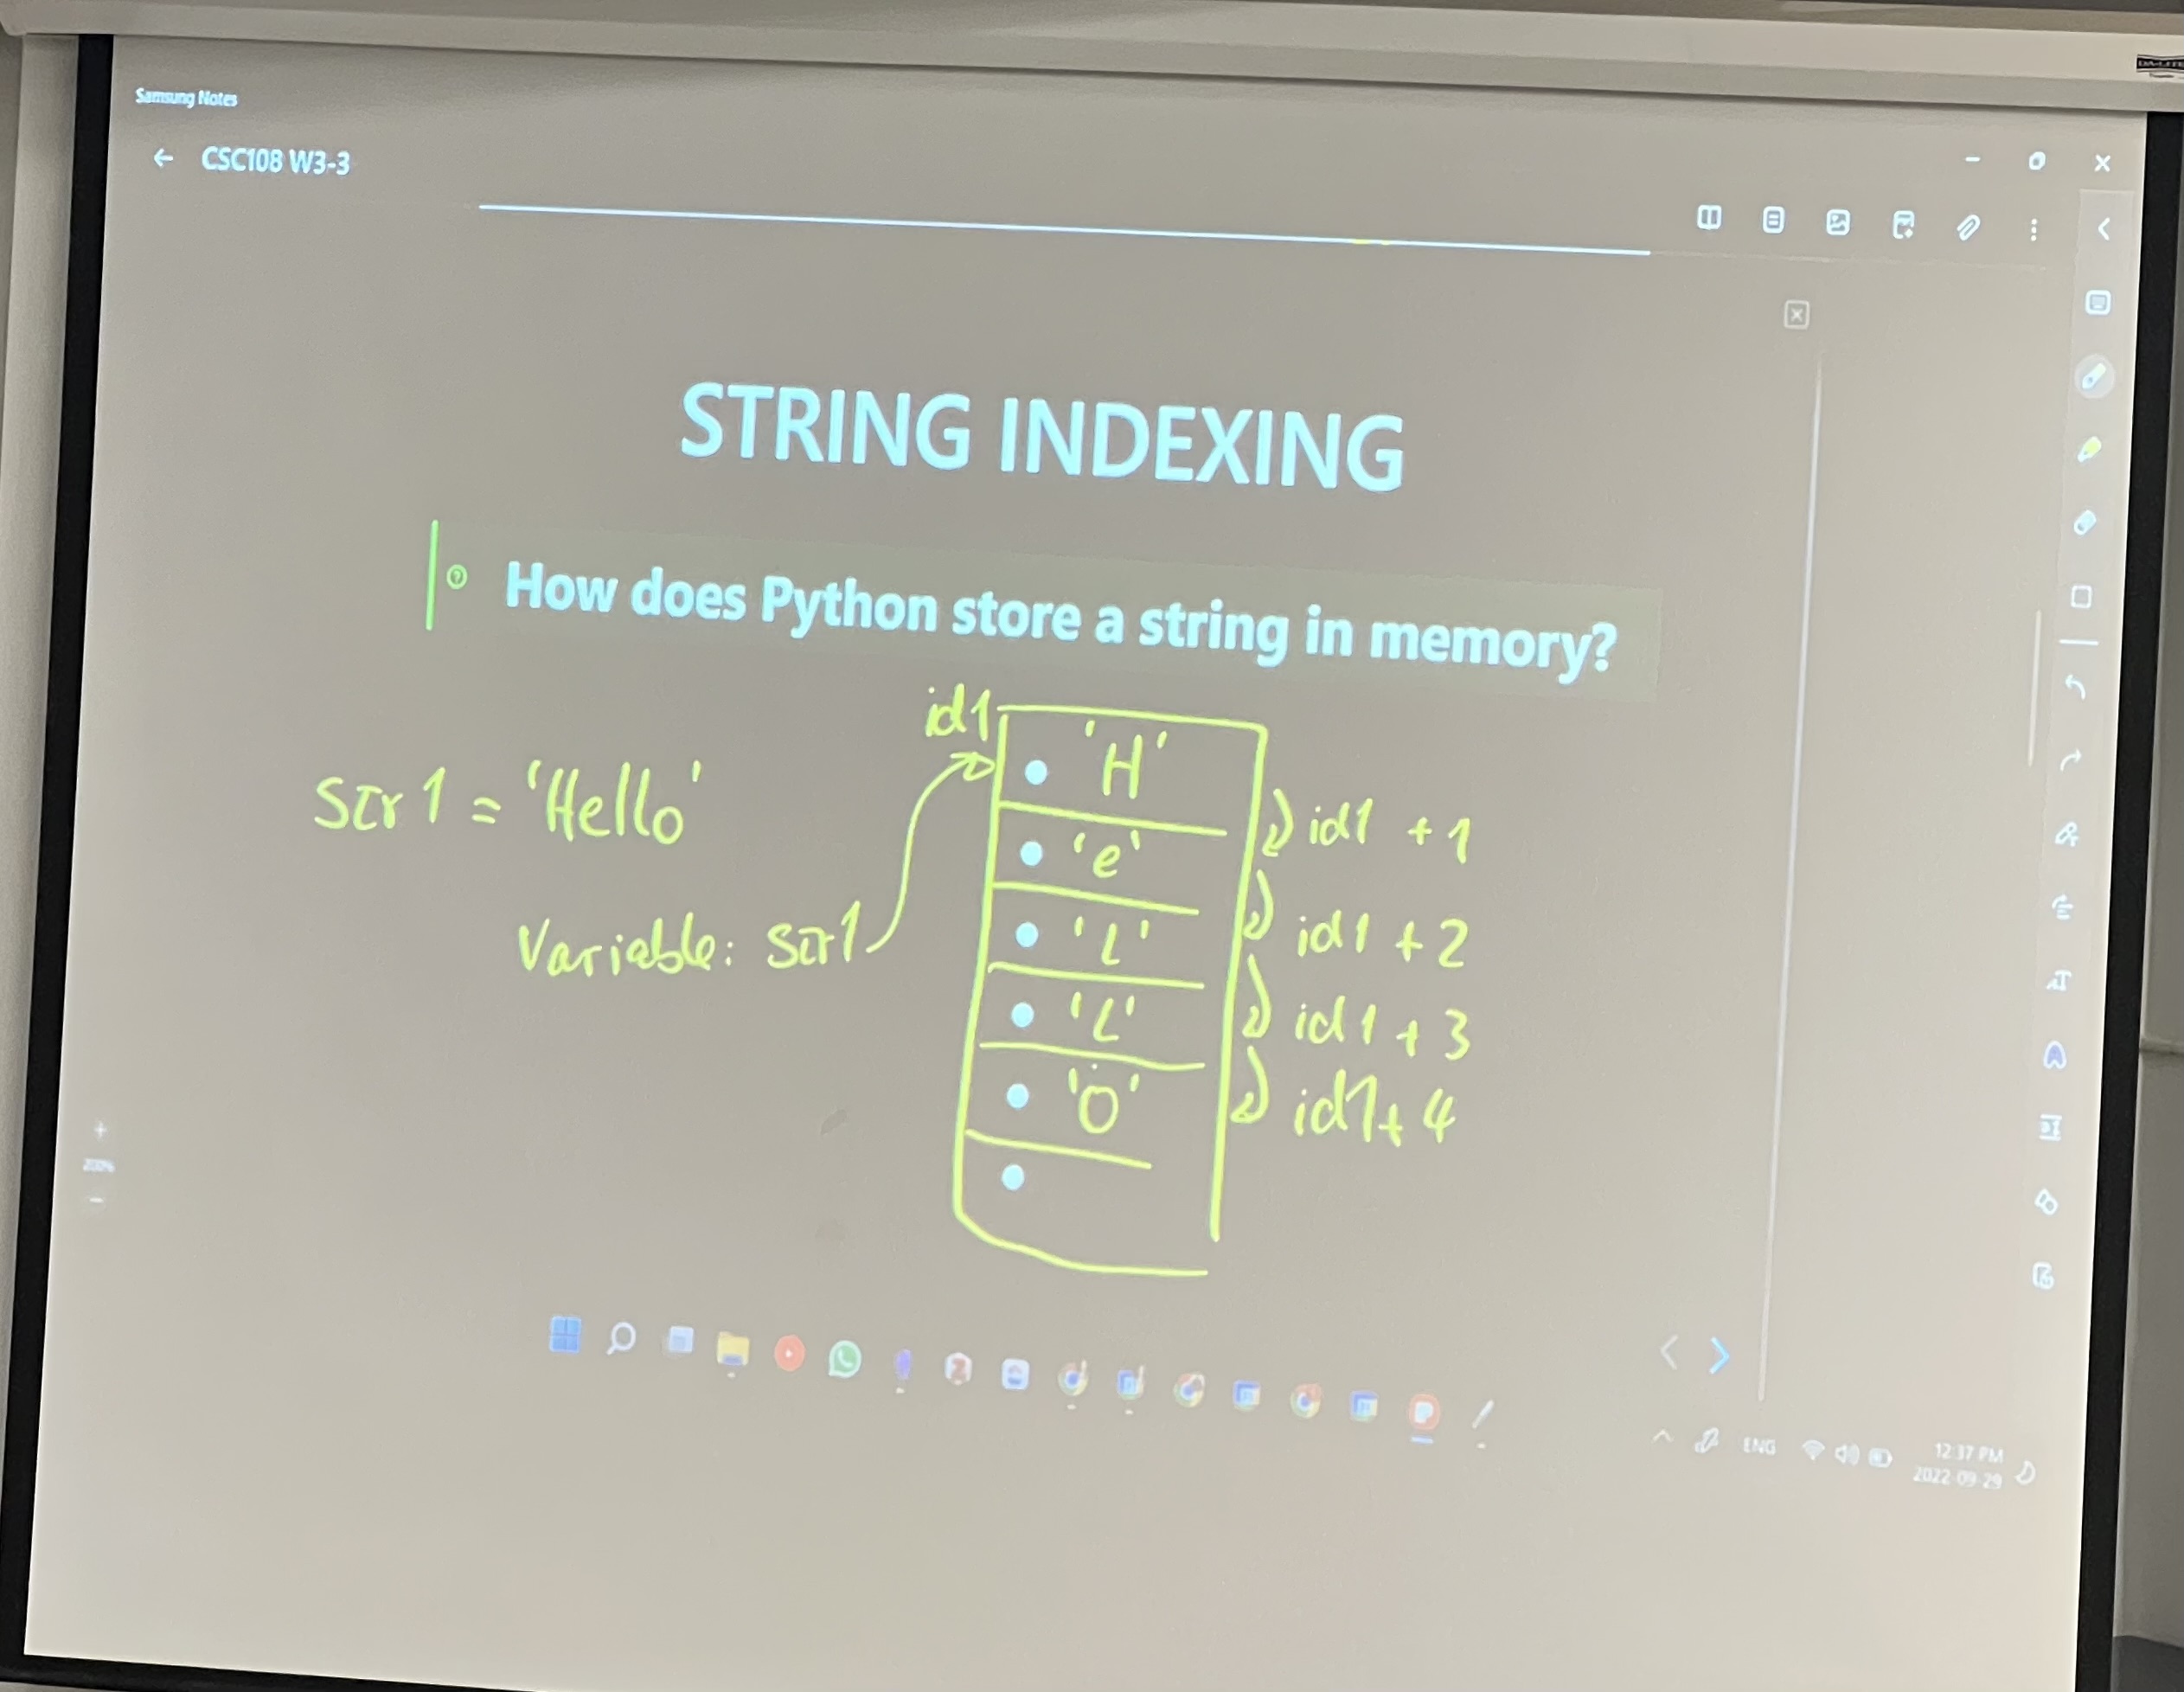 Samsung Notes
← CSC108 W3-3
STRING INDEXING
How does Python store a string in memory?
id1
str1 = 'Hello'
Variable: str1
'H'
id1 + 1
'e'
id1 + 2
'L'
id1 + 3
'L'
id1 + 4
'O'
200%
ENG
12:37 PM
2022-09-29
DA-LITE